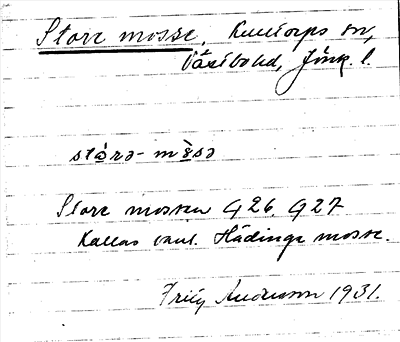 Store mosse, Kulltorps sn,
Västbo hd, Jönk. l.
stårə- mɷ̀sə
Store mossen G26, G27
Kallas vanl. Hädinge mosse.
Fritz Andersson 1931.